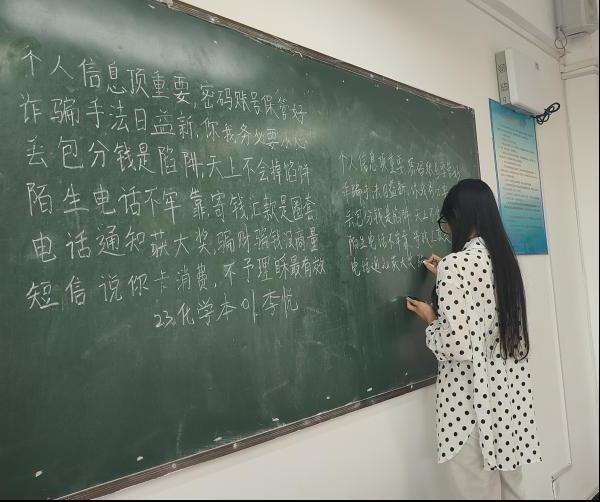 个人信息顶重要,密码账号保管好
诈骗手法日益新,你我务必要小心
丢包分钱是陷阱,天上不会掉馅饼
陌生电话不牢靠,寄钱汇款是圈套
电话通知获大奖,骗财骗钱没商量
短信说你卡消费,不予理睬最有效
23化学本01 李悦
个人信息顶重要,密码
手法日益新,你我
丢包分钱是陷阱,天上不
陌生电话不牢靠,寄钱
电话通知获大奖